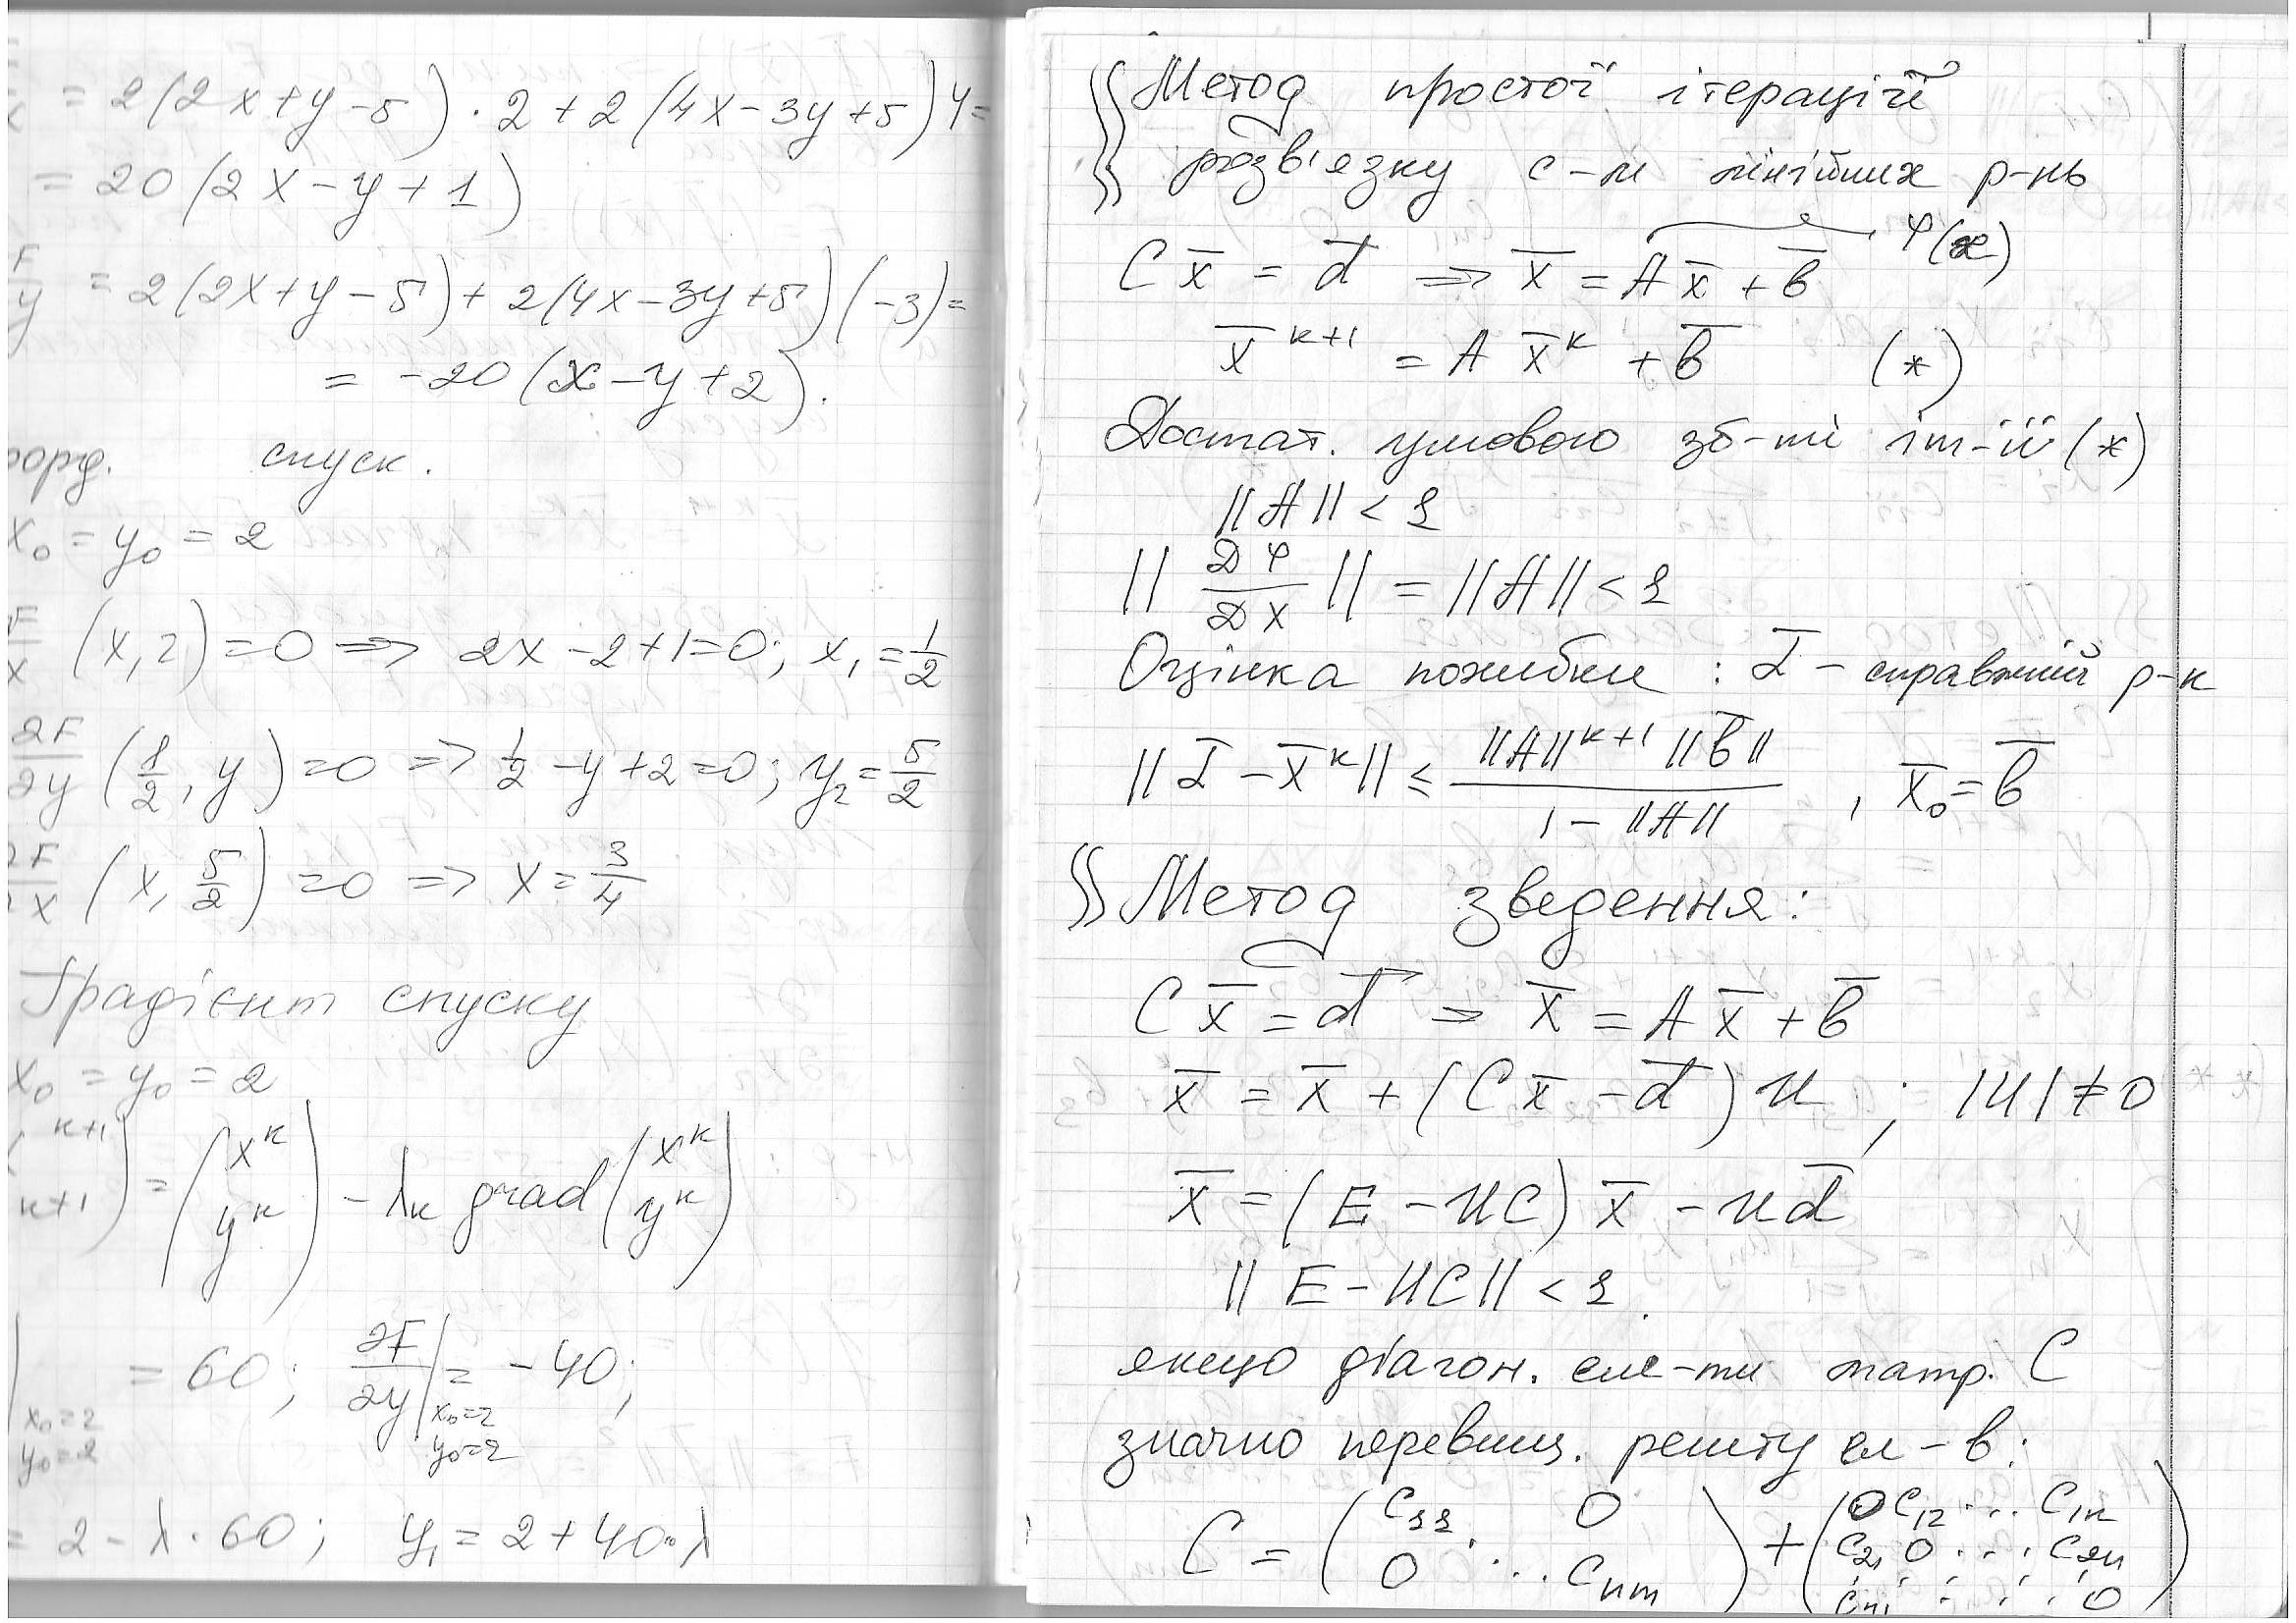 = 2(2x+y-5)·2+2(4x-3y+5)4=
= 20(2x-y+1)
F/y = 2(2x+y-5)+2(4x-3y+5)(-3)=
= -20(x-y+2).
оорд. спуск.
x₀=y₀=2
F/x (x,2)=0 => 2x-2+1=0; x₁=1/2
∂F/∂y (1/2, y)=0 => 1/2-y+2=0; y₂=5/2
∂F/∂x (x, 5/2)=0 => x=3/4
Градієнт спуску
x₀=y₀=2
(ᵏ⁺¹ ᵏ⁺¹) = (xᵏ yᵏ) - λₖ grad (xᵏ yᵏ)
| x₀=2 y₀=2 = 60; ∂F/∂y | x₀=2 y₀=2 = -40;
= 2-λ·60; y₁=2+40·λ
§ Метод простої ітерації
розв'язку с-м лінійних р-нь
Cx̄ = d̄ => x̄ = Ax̄+b̄ φ(x)
x̄ᵏ⁺¹ = A x̄ᵏ + b̄ (*)
Достат. умовою зб-ті іт-ії (*)
||A|| < 1
||Dφ/Dx|| = ||A|| < 1
Оцінка похибки : ᾱ - справжній р-к
||ᾱ-x̄ᵏ|| ≤ ||A||ᵏ⁺¹ ||b̄|| / 1-||A|| , x̄₀=b̄
§ Метод зведення:
Cx̄ = d̄ => x̄ = Ax̄+b̄
x̄ = x̄ + (Cx̄-d̄)U ; |U|≠0
x̄ = (E-UC)x̄ - Ud̄
||E-UC|| < 1.
якщо діагон. еле-ти матр. C
значно перевищ. решту ел-в:
C = (C₁₁ 0
0 ... Cₙₘ) + (0 C₁₂ ... C₁ₙ
C₂₁ 0 ... C₂ₙ
Cₙ₁ ... 0)